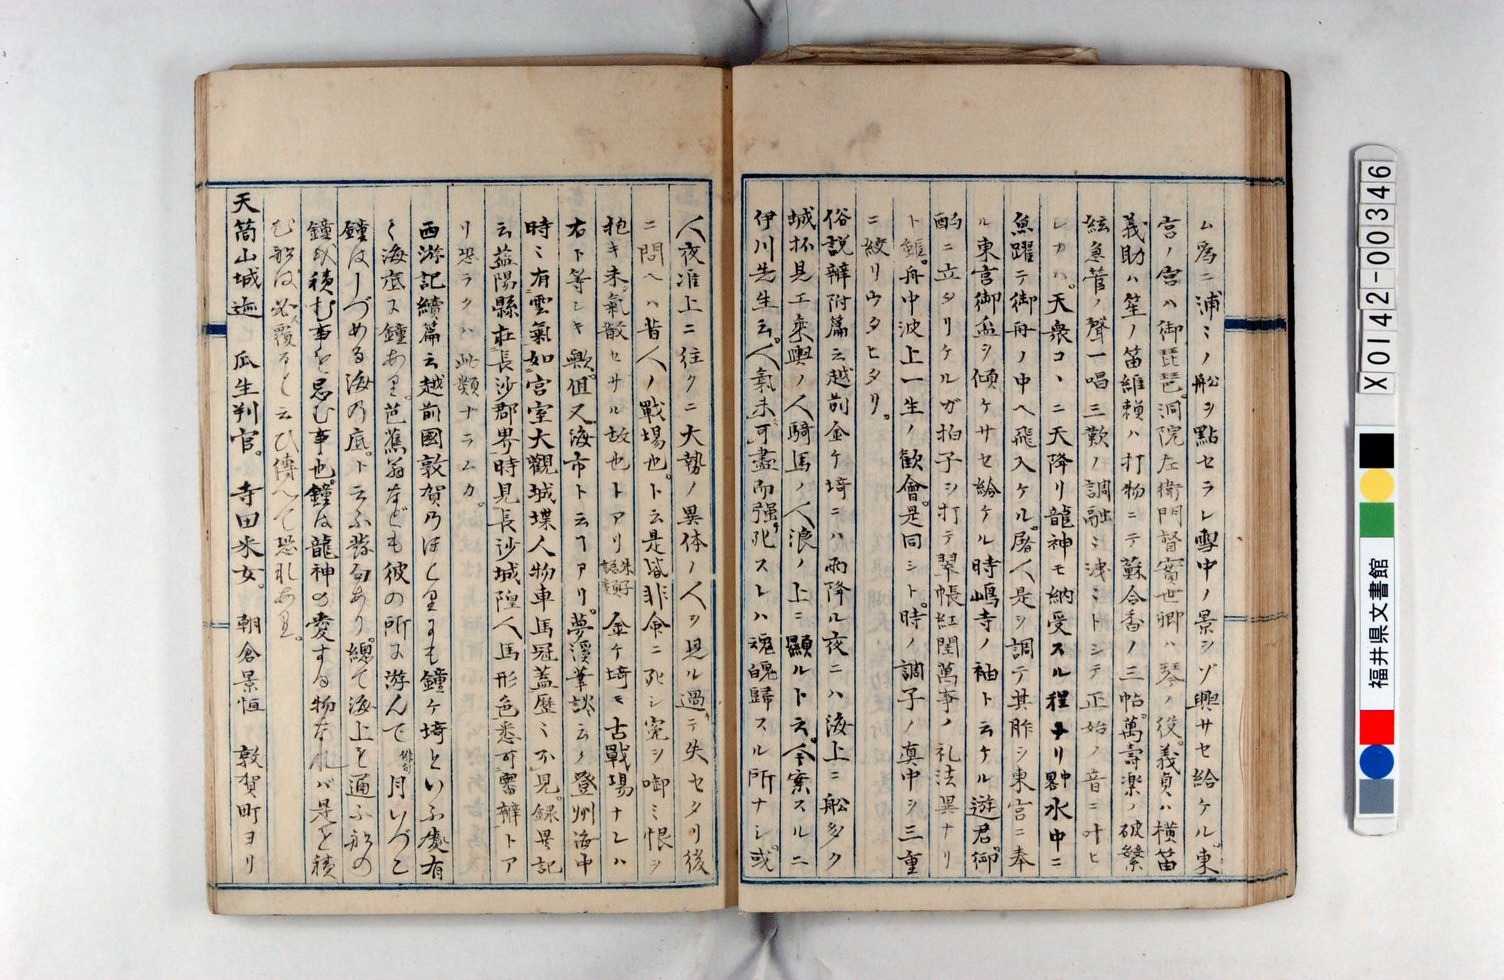 ム爲ニ浦ミノ舩ヲ點セラレ雪中ノ景ヲゾ興サセ給ケル。東
宮ノ宮ハ御琵琶。洞院左衛門督實世卿ハ琴ノ役。義貞ハ横笛
義助ハ笙ノ笛維頼ハ打物ニテ蘇合香ノ三帖。萬壽楽ノ破繁
絃急管ノ聲一唱三歎ノ調融ミ洩ミトシテ正始ノ音ニ叶ヒ
シカハ。天衆コヽニ天降リ龍神モ納受スル程ナリ 水中ニ
魚躍テ御舟ノ中ヘ飛入ケル。屠人是ヲ調テ其胙ヲ東宮ニ奉
ル東宮御盃ヲ傾ケサセ給ケル時嶋寺ノ袖ト云ケル遊君御
酌ニ立タリケルガ拍子ヲ打テ翠帳紅閨萬事ノ礼法異ナリ
ト雖。舟中波上一生ノ歓會。是同シト。時ノ調子ノ真中ヲ三重
ニ綾リウタヒタリ。
俗説辯附篇云越前金ケ埼ニハ雨降ル夜ニハ海上ニ舩多ク
城杯見エ乘輿ノ人騎馬ノ人浪ノ上ニ顯ルト云。今案スルニ
伊川先生云。人氣未可盡而强死スレハ魂魄歸スル所ナシ。或
人夜淮上ニ往クニ大勢ノ異体ノ人ヲ見ル過テ失セタリ後
ニ問ヘハ昔人ノ戰場也。ト云是皆非命ニ死シ寃ヲ啣ミ恨ヲ
抱キ未氣散セサル故也トアリ 朱子語類 金ケ埼モ古戰場ナレハ
右ト等シキ歟。但又海市ト云アリ。夢溪筆談云ノ登州海中
時ミ有雲氣如宮室大觀城堞人物車馬冠蓋歴ミ可見。録異記
云益陽縣在長沙郡界時見長沙城隍人馬形色悉可審辯トア
リ恐ラクハ此類ナラムカ。
西游記續篇云越前國敦賀乃ほとりにも鐘ヶ埼といふ處有
て海底に鐘あり。芭蕉翁なども彼の所に游んで 俳句 月いづこ
鐘はしづめる海の底。ト云ふ發句あり。總て海上を通ふ舩の
鐘を積む事を忌む事也。鐘は龍神の愛する物なれバ是を積
む舩は必覆ると云ひ傳へて恐れあり。
天筒山城迹 瓜生判官。 寺田采女。 朝倉景恒 敦賀町ヨリ
福井県文書館
X0142-00346